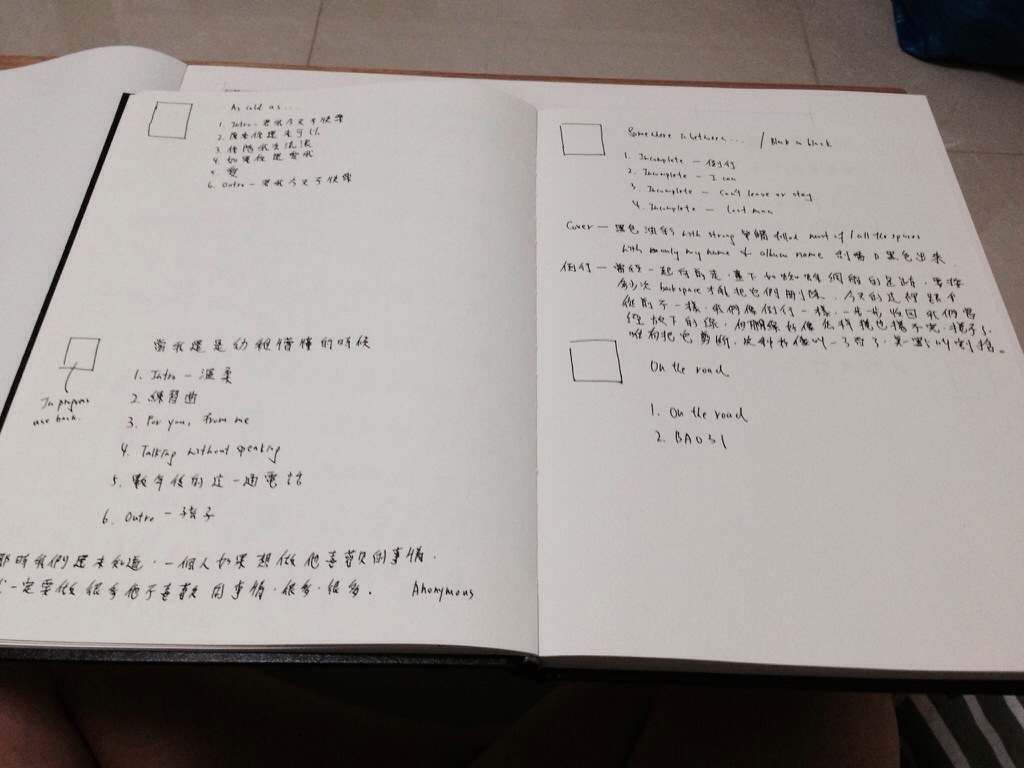 As cold as...
1. Intro - 若我今天不快樂
2. 原來你還未可以
3. 你陪我去流浪
4. 如果你還愛我
5. 愛
6. Outro - 若我今天不快樂
當我還是幼稚懵懂的時候
1. Intro - 溫柔
2. 練習曲
3. For you, from me
4. Talking without speaking
5. 數年後的這一通電話
6. Outro - 孩子
In progress
use back.
那時我們還未知道,一個人如果想做他喜歡的事情,
一定要做很多他不喜歡的事情,很多,很多。 Anonymous
Somewhere in between... / Black in black
1. Incomplete - 倒行
2. Incomplete - I can
3. Incomplete - Can't leave or stay
4. Incomplete - Lost man
Cover - 黑色油彩 with strong 筆觸 filled most of / all the spaces
with only my name & album name 黑色出來.
倒行 - 曾經一起向前走,
backspace 才能把它們刪除. 今天的這裡
從前不一樣,我們像倒行一樣,一步一步收回我們曾
經放下的線,
唯有把它剪斷,
On the road
1. On the road
2. BA031